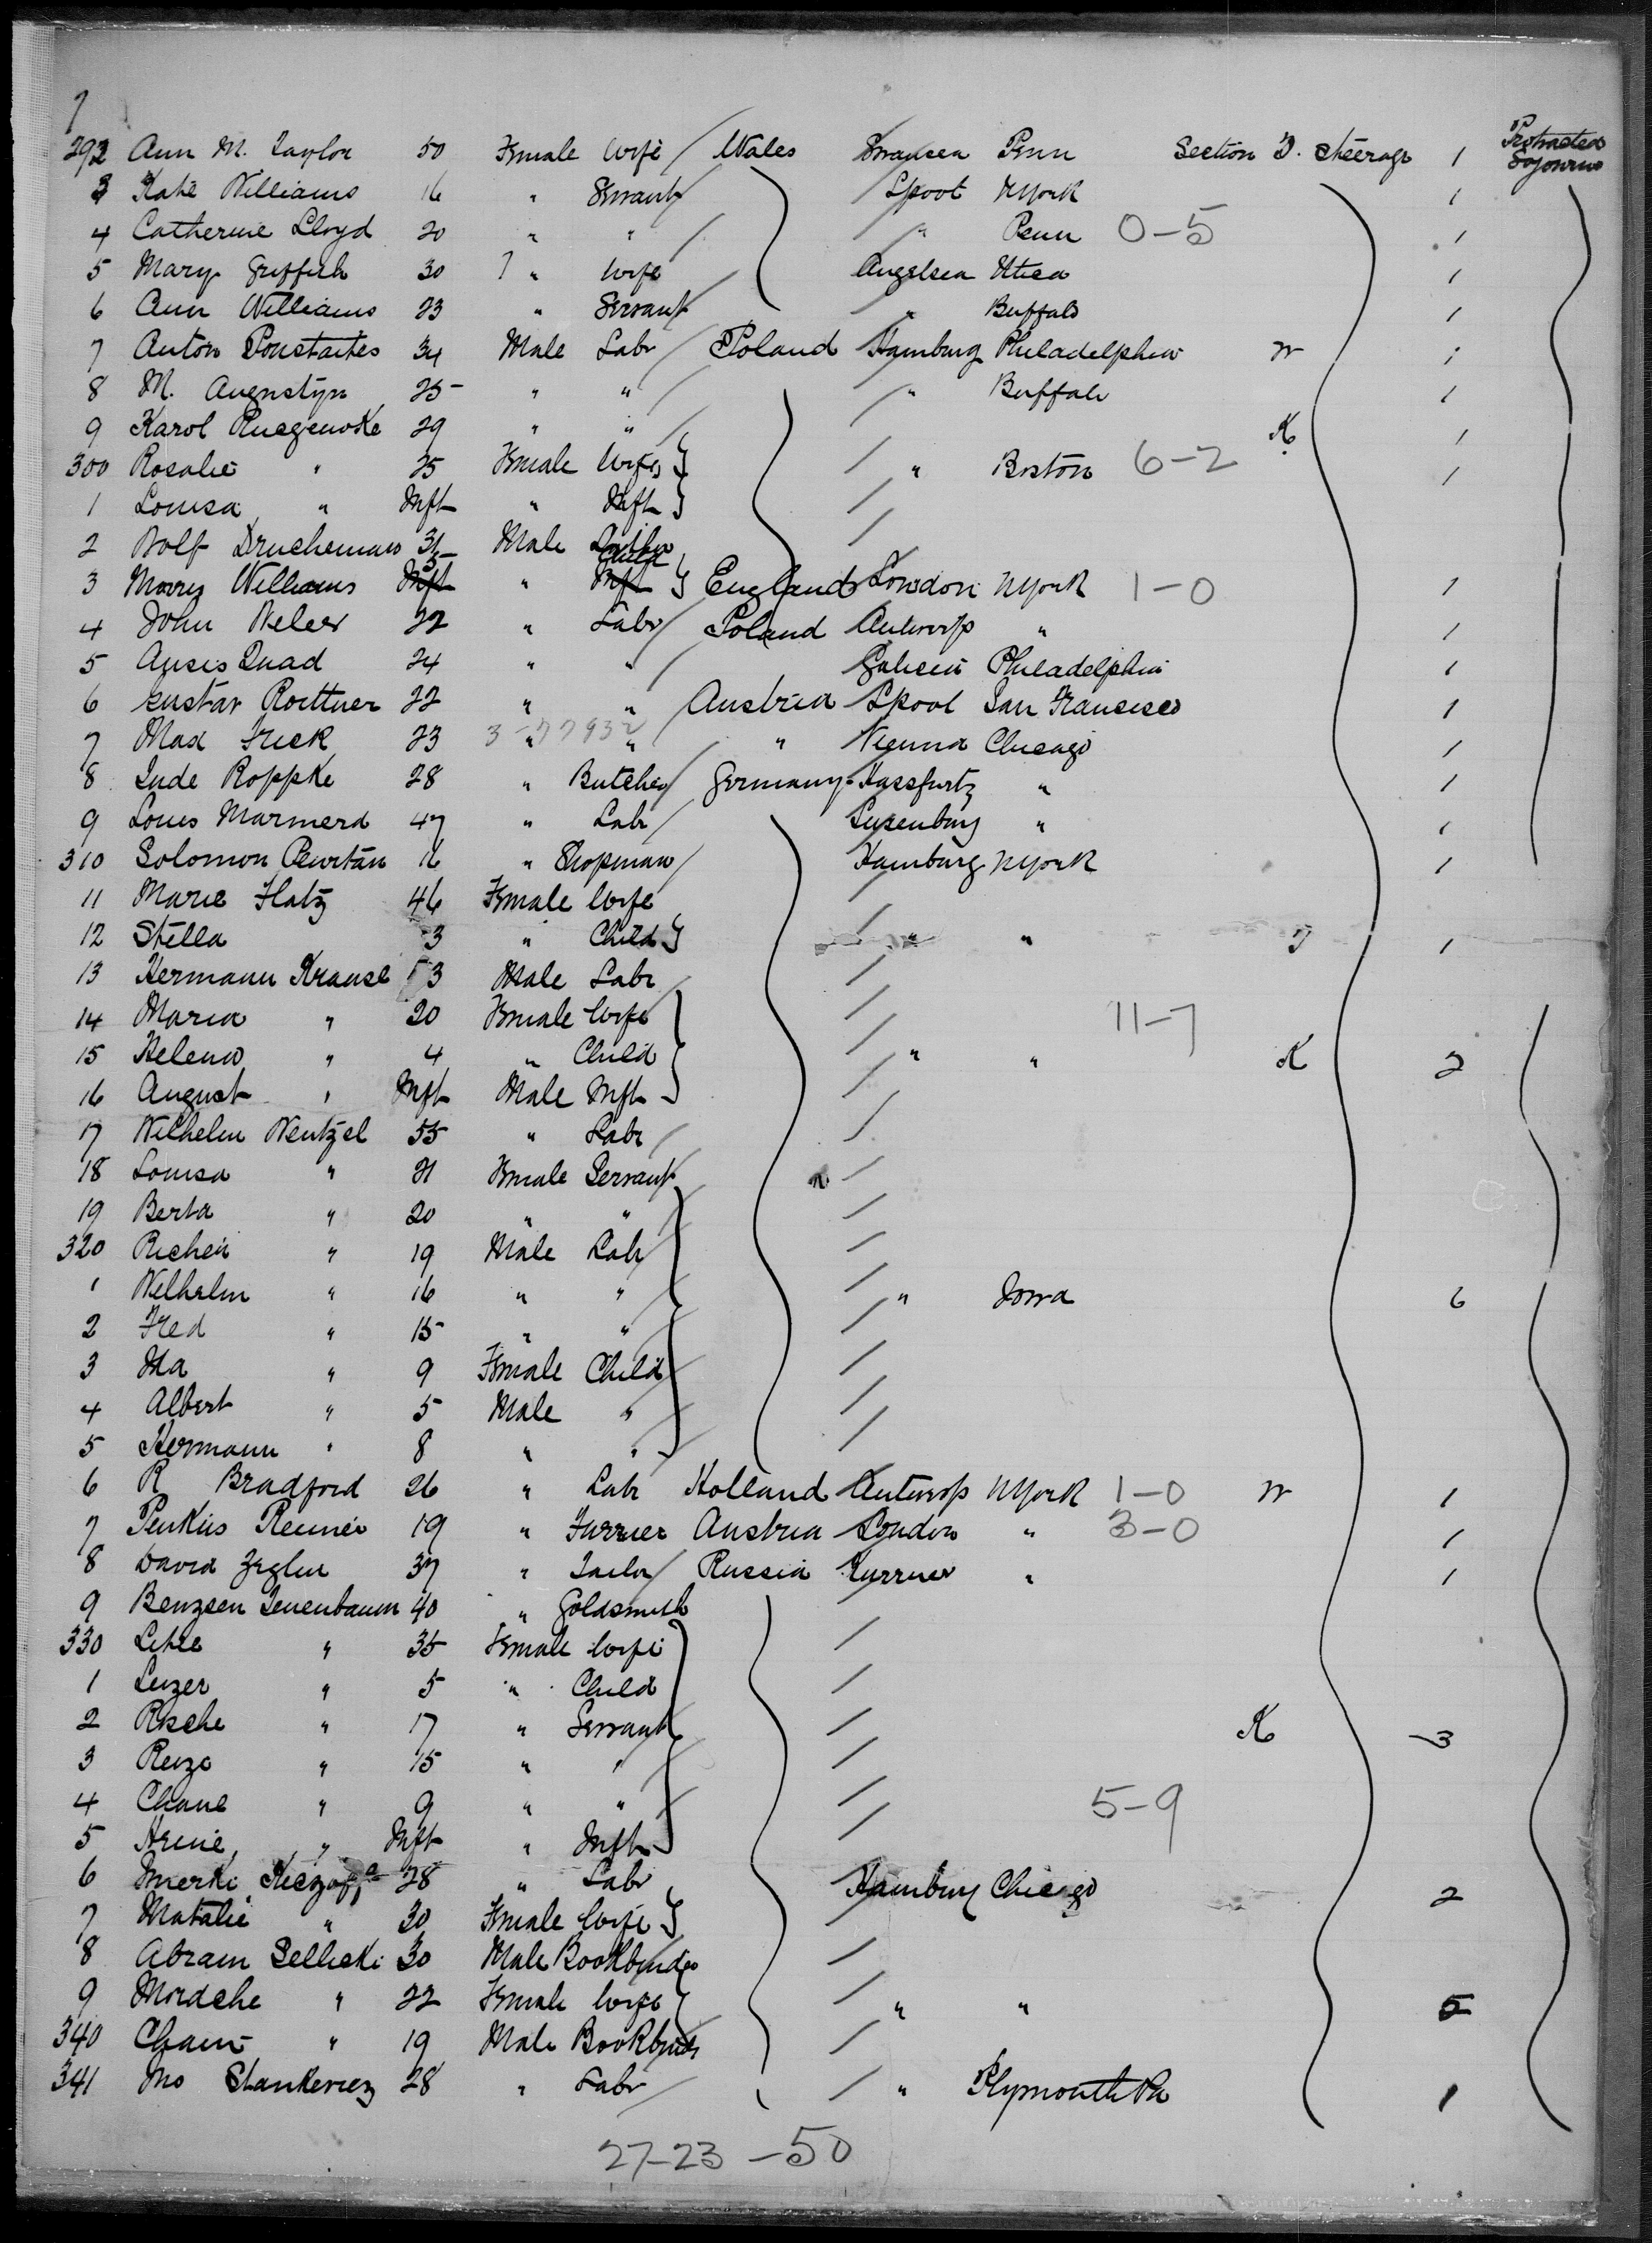 7
292 Ann M. Taylor 50 Female Wife Wales Swansea Penn Section D. Steerage 1 Protracted Sojourns
3 Kate Williams 16 " Servant Lpool NYork 1
4 Catherine Lloyd 20 " " " Penn 0-5 1
5 Mary Griffith 30 " Wife Angelsea Utica 1
6 Ann Williams 23 " Servant " Buffalo 1
7 Anton 34 Male Labr Poland Hamburg Philadelphia 1
8 M. Augustyn 25 " " " Buffalo 1
9 Karol 29 " " K 1
300 Rosalie " 25 Female Wife " Boston 6-2 1
1 Louisa " Inft " Inft
2 Wolf Drucheman 31 Male
3 Morris Williams Inft 5 " Inft Child England London NYork 1-0 1
4 John 22 " Labr Poland Antwerp " 1
5 Ausis Quad 24 " " Philadelphia 1
6 Gustav Roettner 22 " " Austria Lpool San Fransisco 1
7 Max Frek 23 " " " Vienna Chicago 1
8 Lude Roppke 28 " Butcher Germany Hassfurtz " 1
9 Louis Marmerd 47 " Labr Luxenburg " 1
310 Solomon 16 " Shopman Hamburg NYork 1
11 Marie Flatz 46 Female Wife
12 Stella 3 " Child " " 1
13 Hermann Krause 53 Male Labr
14 Maria " 20 Female Wife 11-7
15 Helena " 4 " Child " " K 2
16 August " Inft Male Inft
17 Wilhelm Wentzel 55 " Labr
18 Louisa " 21 Female Servant
19 Berta " 20 " "
320 " 19 Male Labr
1 Wilhelm " 16 " " " Iowa 6
2 Fred " 15 " "
3 Ida " 9 Female Child
4 Albert " 5 Male "
5 Hermann " 8 " "
6 R Bradford 26 " Labr Holland Antwerp NYork 1-0 1
7 19 " Furrier Austria London " 3-0 1
8 David Zeglin 37 " Tailor Russia " 1
9 40 " Goldsmith
330 " 35 Female Wife
1 Leizer " 5 " Child
2 " 17 " Servant K 3
3 " 15 " "
4 Chane " 9 " " 5-9
5 " Inft " Inft
6 28 " Labr Hamburg Chicago 2
7 Natalie " 30 Female Wife
8 Abram 30 Male Bookbinder
9 Mordche " 22 Female Wife " " 5
340 Chaim " 19 Male Bookbinder
341 Stankeviez 28 " Labr " Plymouth Pa 1
27-23-50